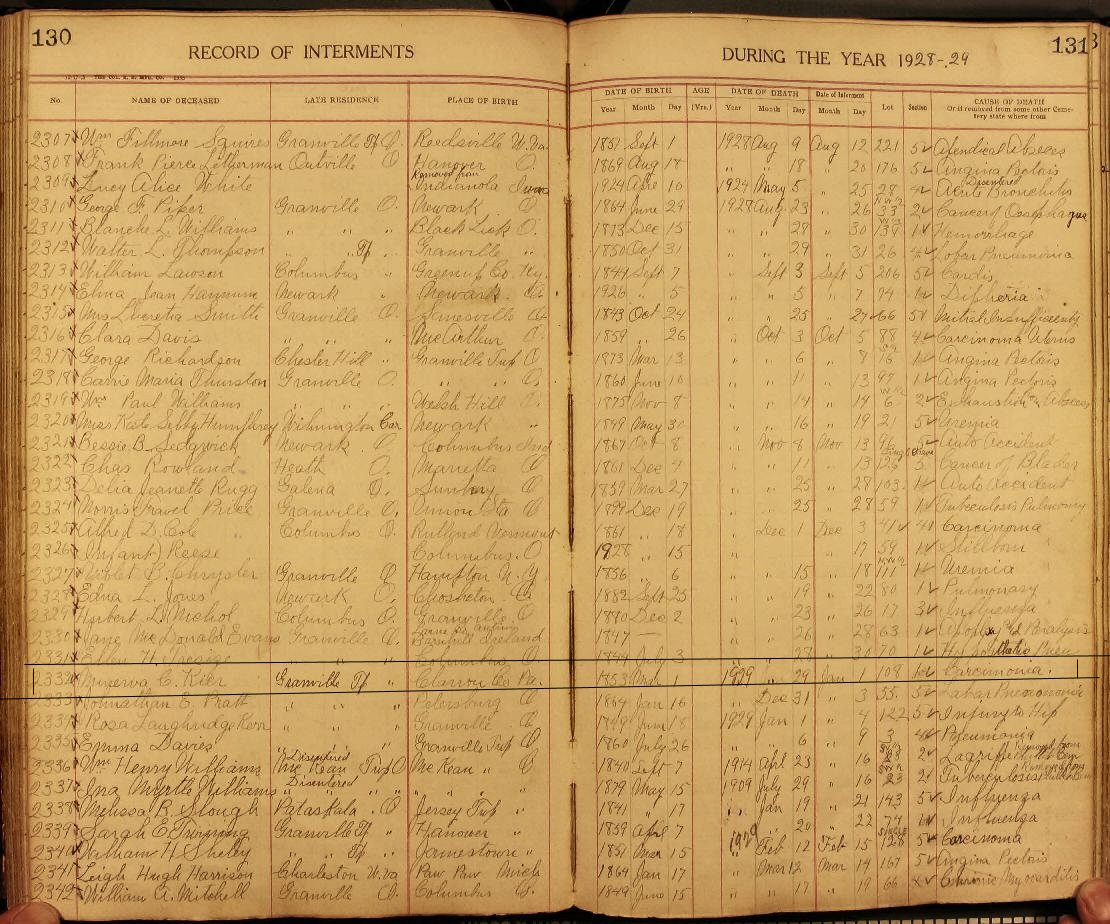 130
RECORD OF INTERMENTS
DURING THE YEAR 1928-29
131
No. NAME OF DECEASED LATE RESIDENCE PLACE OF BIRTH DATE OF BIRTH AGE DATE OF DEATH Date of Interment Lot Section CAUSE OF DEATH
Year Month Day (Yrs.) Year Month Day Month Day Or if removed from some other Cemetery state where from
2307 Wm Fillmore Squires Granville Tp O. Reedsville W. Va. 1851 Sept 1 1928 Aug 9 Aug 12 221 5
2308 Frank Pierce Letherman Outville O Hanover O. 1869 Aug 18 " " 18 " 20 176 5 Angina Pectoris
2309 Lucy Alice White Removed from Indianola 1924 10 1924 May 5 " 25 28 Disentered Acute Bronchitis
2310 George F. Piper Granville O. Newark O. 1864 June 29 1928 Aug 23 " 26 33 2 Cancer of Oesophagus
2311 Blanche L. Williams " " " Black Lick O. 1873 Dec 15 " " 28 " 30 139 1 Hemorrhage
2312 Walter L. Thompson " Tp " Granville " 1850 Oct 31 " " 29 " 31 26 Lobar Pneumonia
2313 William Lawson Columbus " Greenup Co. Ky. 1844 Sept 7 " Sept 3 Sept 5 206 5
2314 Elma Jean Newark " Newark O. 1926 " 5 " " 5 " 7 74 1 Diptheria
2315 Mrs Lucretia Smith Granville O. 1843 Oct 24 " " 25 " 27 66 5 Mitral Insufficiency
2316 Clara Davis " " " McArthur O. 1859 " 26 " Oct 3 Oct 5 88 4 Carcinoma Uterus
2317 George Richardson Chester Hill " Granville Twp O 1873 Mar 13 " " 6 " 8 16 1 Angina Pectoris
2318 Carrie Maria Thurston Granville O. " " O. 1860 June 10 " " 11 " 13 97 1 Angina Pectoris
2319 Wm Paul Williams " " " Welsh Hill O. 1875 Nov 8 " " 14 " 14 6 2 Exhaustion Abscess
2320 Miss Kate Sibby Humphrey Wilmington Newark " 1849 May 31 " " 16 " 19 21 5 Uremia
2321 Bessie B. Sedgwick Newark O Columbus Ind 1867 Oct 8 " Nov 8 Nov 13 96 5 Auto Accident
2322 Chas Rowland Heath O. Marietta O 1861 Dec 4 " " 11 " 13 126 5 Cancer of Blader
2323 Delia Jeanette Rugg Galena O. Sunbury O 1859 Mar 27 " " 25 " 28 103 1 Auto Accident
2324 Norris Price Granville O. Union Sta O 1899 Dec 19 " " 25 " 28 59 1 Tuberculosis Pulmonary
2325 Alfred D. Cole Columbus O. Vermont 1861 " 18 " Dec 1 Dec 3 41 4 Carcinoma
2326 (Infant) Reese Columbus. O 1928 " 15 " " " 17 59 1 Stillborn
2327 Violet B. Chrysler Granville O Hampton N.Y 1856 " 6 " " 15 " 18 111 1 Uremia
2328 Edna L. Jones Newark O. Coshocton O. 1882 Sept 25 " " 19 " 22 80 1 Pulmonary
2329 Hubert L. Nichol Columbus O. Granville O 1890 Dec 2 " " 23 " 26 17 3 Influenza
2330 Jane McDonald Evans Granville O. Ireland 1847 — " " 26 " 28 63 1 Apoplexy & Paralysis
2331 Ellen H. Columbus O 1844 July 3 " " 28 " 30 70 1
2332 Minerva C. Kier Granville Tp " Clarion Co Pa. 1853 Mch 1 1929 " 29 Jan 1 108 1 Carcinomia.
2333 Johnathan E. Pratt " " " Petersburg O 1864 Jan 16 Dec 31 " 3 55 5 Labar Pneumonia
2334 Rosa Laughridge Kerr " " " Granville O 1849 June 18 1929 Jan 1 " 4 122 5 Injury to Hip
2335 Emma Davies " " " Granville Twp O 1860 July 26 " " 6 " 9 3 4 Pneumonia
2336 Wm Henry Williams Disentered McKean Twp O McKean " O 1840 Sept 7 1914 Apl 23 " 16 23 2 Lagrippe Removed from
2337 Ina Myrtle Williams Disentered " " " " " 1879 May 15 1909 July 29 " 16 23 2 Tuberculosis Removed from
2338 Melissa B. Slough Pataskala O Jersey Twp " 1841 " 17 " Jan 19 " 21 143 5 Influenza
2339 Sarah E. Granville Tp " Hanover " 1859 Apl 7 " " 20 " 22 74 1 Influenza
2340 William H. Shelby " Tp " Jamestown " 1851 Mar 15 1929 Feb 12 Feb 15 128 SINGLE 5 Carcinoma
2341 Leigh Hugh Harrison Charleston W. Va Paw Paw Mich 1864 Jan 17 " Mar 12 Mar 14 167 5 Angina Pectoris
2342 William A. Mitchell Granville O. Columbus O. 1849 June 15 " " 17 " 19 66 Chronic Myocarditis